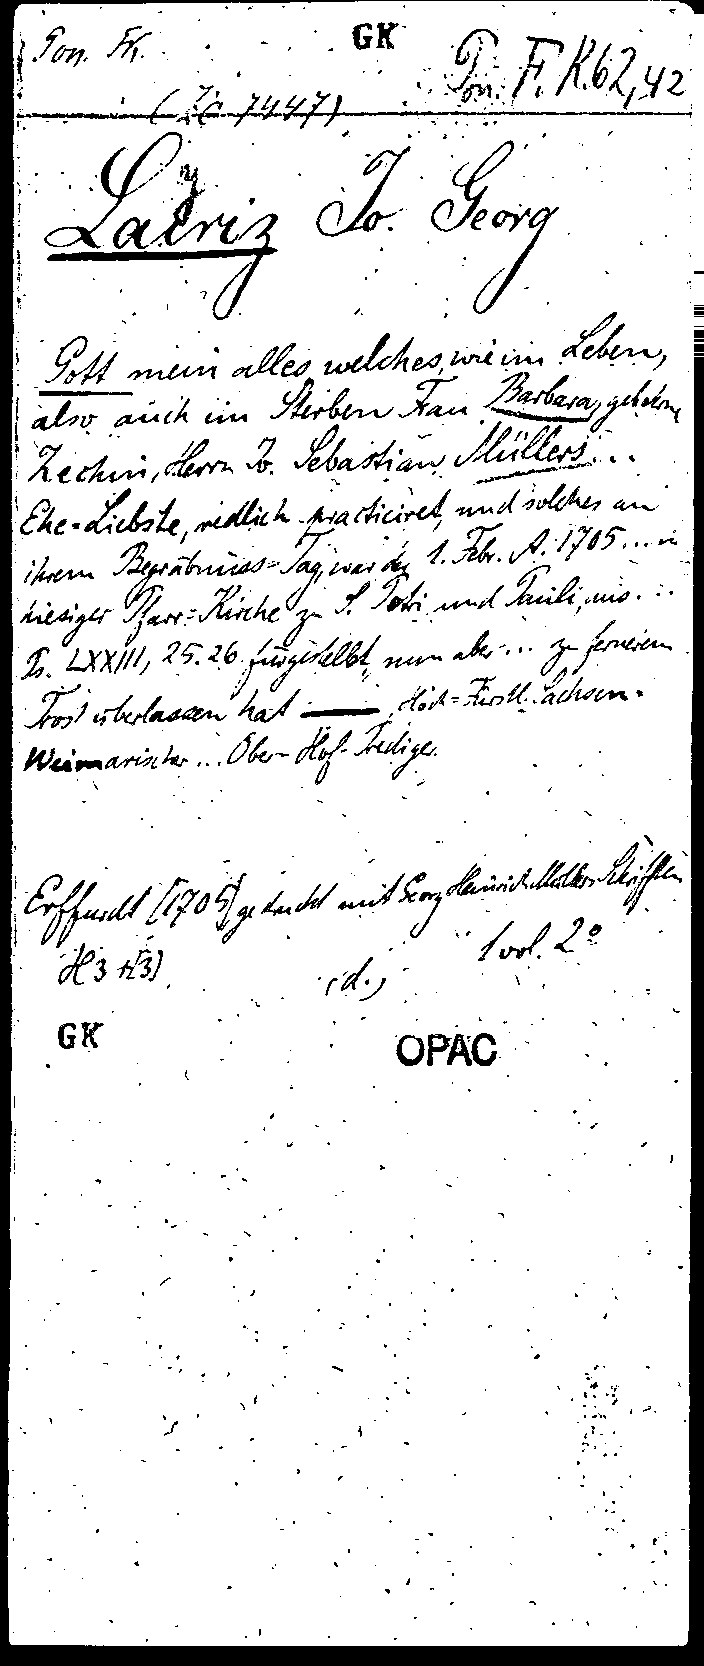 Pon. Fr.
GK
Pon. F. K. 62, 42
(Zc 7447)
Laeriz Jo. Georg
Gott mein alles welches, wie im Leben,
also auch im Sterben Frau Barbara, geborne
Zechin, Herrn Jo. Sebastian Müllers...
Ehe-Liebste, redlich practiciret, und solches an
ihrem Begräbnüss-Tag, war der 1. Febr. A. 1705... in
hiesiger Pfarr-Kirche zu S. Petri und Pauli, aus...
Ps. LXXIII, 25. 26 fürgestellet, nun aber... zu fernerem
Trost überlassen hat — Hoch-Fürstl. Sachsen-
Weimarischer... Ober-Hof-Prediger.
Erffurdt [1705] gedruckt mit Georg Heinrich Müllers Schrifften
1 vol. 2°
(d.)
GK
OPAC